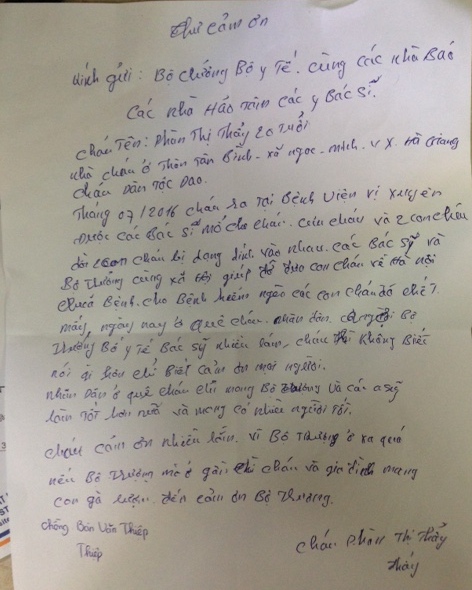 Thư cảm ơn
Kính gửi: Bộ Chưởng Bộ y Tế. cùng các nhà Báo
Các nhà Hảo Tâm các y Bác Sĩ.
Cháu Tên: Phàn Thị Thảy 20 Tuổi
nhà cháu ở Thôn Tân Bình - xã ngọc - minh - V X. Hà Giang
Cháu Dân Tộc Dao.
Tháng 07/2016 cháu ra Tại Bệnh viện Vị Xuyên
Được các Bác Sĩ mổ cho cháu. cứu cháu và 2 con cháu
2 con cháu bị dạng dính vào nhau. các Bác Sỹ và
Bộ Trưởng cùng xã hội giúp đỡ đưa con cháu về Hà nội
chữa Bệnh. cho Bệnh hiểm ngèo các con cháu đã chết.
mấy ngày nay ở quê cháu. nhân dân Bộ
Trưởng Bộ y Tế Bác sỹ nhiều lắm, cháu Không Biết
nói gì hơn chỉ Biết Cảm ơn mọi người.
nhân Dân ở quê cháu chỉ mong Bộ Trưởng và các sỹ
làm Tốt hơn nữa và mong có nhiều người Tốt.
cháu cảm ơn nhiều lắm. vì Bộ Trưởng ở xa quá
nếu Bộ Trưởng mà ở gần Thì cháu và gia đình mang
con gà đến cảm ơn Bộ Trưởng.
Chồng Bàn Văn Thiệp
Thiệp
Cháu Phàn Thị Thảy
Thảy